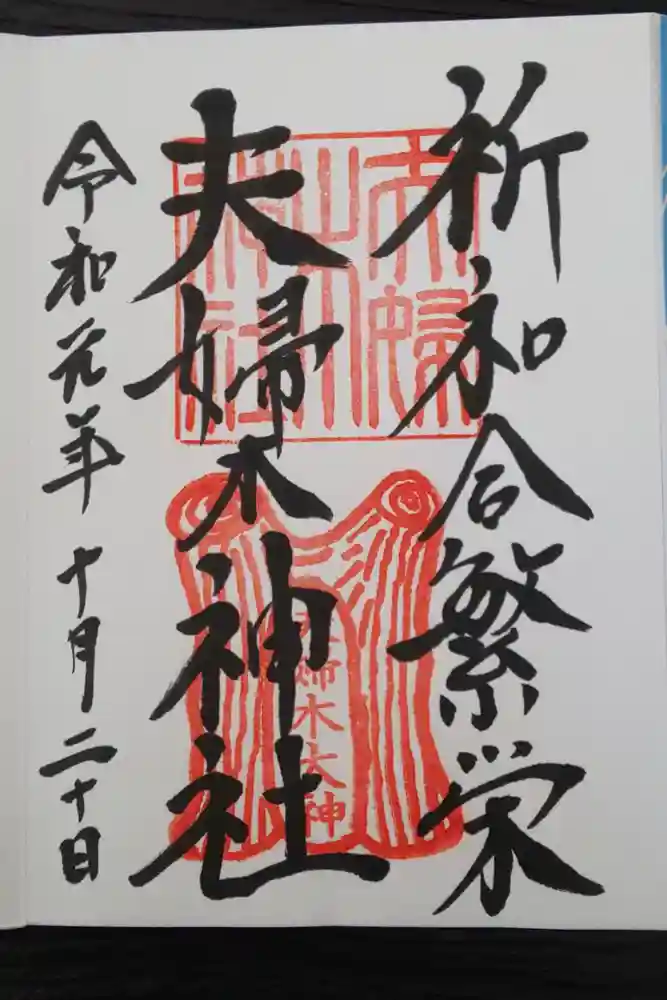 祈和合繁栄
夫婦木神社
令和元年十月二十日
夫婦木神社
夫婦木大神